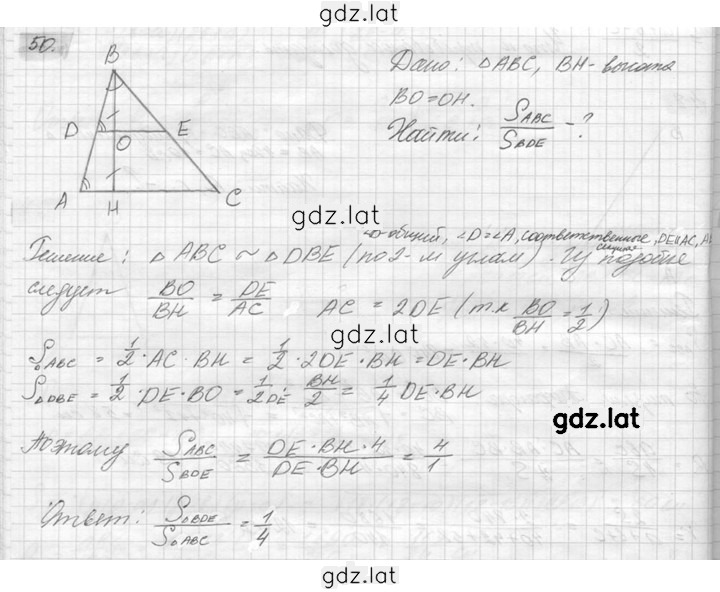 gdz.lat
50.
B
D
O
E
A
H
C
Дано: △ABC, BH - высота
BO = OH.
Найти: S_ABC / S_BDE - ?
gdz.lat
общий, ∠D=∠A, соответственные, DE∥AC, AB секущая
Решение: △ABC ~ △DBE (по 2-м углам). Из подобия
следует BO/BH = DE/AC AC = 2DE (т.к BO/BH = 1/2)
gdz.lat
S△ABC = 1/2 · AC · BH = 1/2 · 2DE · BH = DE · BH
S△DBE = 1/2 · DE · BO = 1/2 DE · BH/2 = 1/4 DE · BH
gdz.lat
Поэтому S_ABC / S_BDE = DE · BH · 4 / DE · BH = 4/1
Ответ: S△BDE / S△ABC = 1/4
gdz.lat